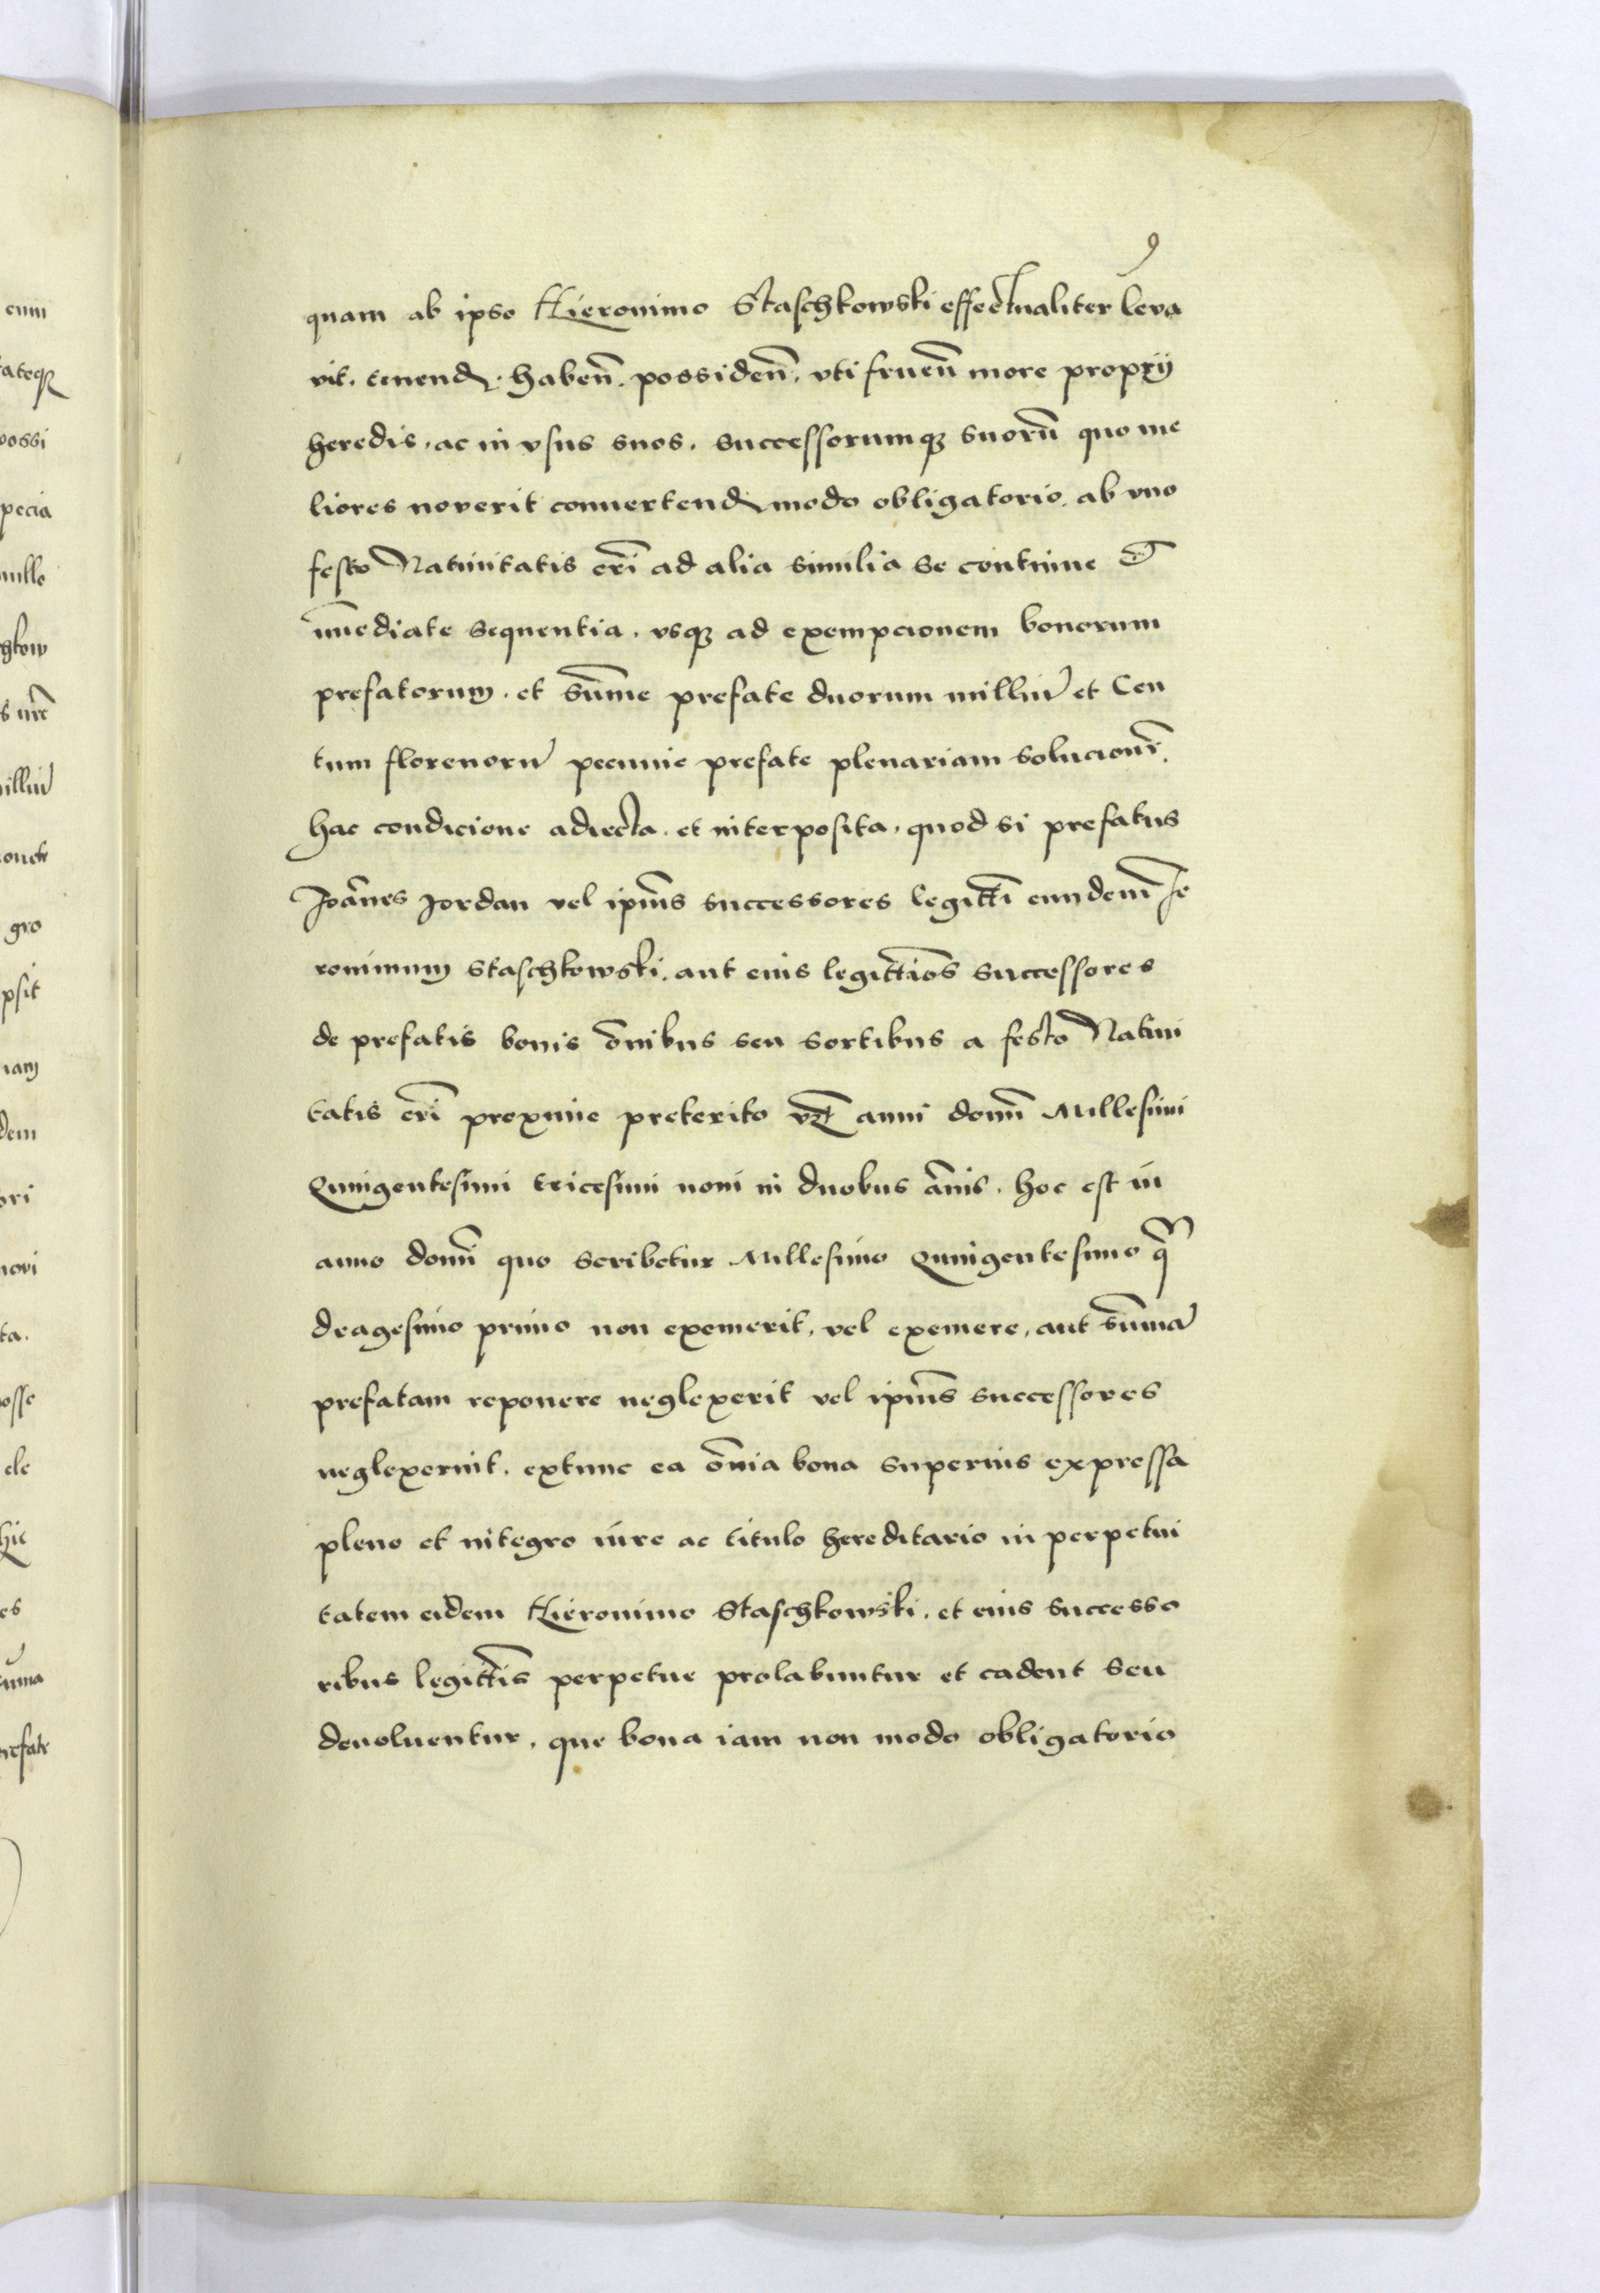 9
quam ab ipso Hieronimo Staschkowski effectualiter leva
vit. tenend. habeñ. possideñ. vti frueñ more proprij
heredis. ac in vsus suos. successorumq3 suorũ quo me
liores noverit conuertend modo obligatorio. ab vno
festo Natiuitatis cri̅ ad alia similia se continue et
im̅ediate sequentia. vsq3 ad exempcionem bonorum
prefatorum. et sum̅e prefate duorum milliũ et Cen
tum florenorũ pecunie prefate plenariam solucione̅.
hac condicione adiecta. et interposita. quod si prefatus
Joan̅es Jordan vel ipius̅ successores legitti̅ eundem Je
ronimum Staschkowski. aut eius legitti̅os successores
de prefatis bonis o̅nibus seu sortibus a festo Natiui
tatis cri̅ proxime preterito vz̅ anni domi̅ Millesimi
Quingentesimi tricesimi noni in duobus an̅is. hoc est in
anno domi̅ quo scribetur Millesimo Quingentesimo qa
dragesimo primo non exemerit. vel exemere, aut sum̅ã
prefatam reponere neglexerit vel ipius̅ successores
neglexerint. extunc ea o̅nia bona superius expressa
pleno et integro iure ac titulo hereditario in perpetui
tatem eidem Hieronimo Staschkowski. et eius successo
ribus legitti̅s perpetue prolabuntur et cadent seu
deuoluentur. que bona iam non modo obligatorio
cum
ateq3
possi
pecia
mille
gkow
illiũ
gro
psit
iam
dem
ori
novi
ta.
osse
cle
hic
es